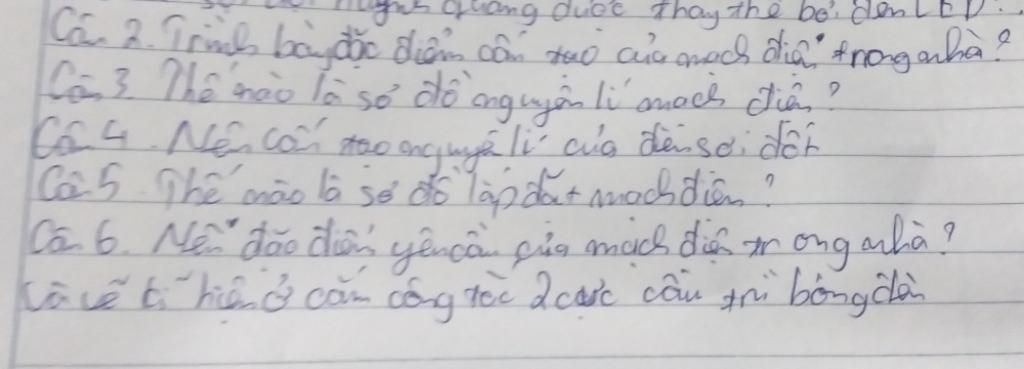 quang được thay thế bởi đèn LED?
Câu 2. Trình bày đặc điểm cấu tạo của mạch điện trong nhà?
Câu 3 Thế nào là sơ đồ nguyên lí mạch điện?
Câu 4. Nêu cấu tạo nguyên lí của đèn sợi đốt
Câu 5. Thế nào là sơ đồ lắp đặt mạch điện?
Câu 6. Nêu đặc điểm yêu cầu của mạch điện trong nhà?
vẽ kí hiệu ổ cắm công tắc 2 cực cầu trì bóng đèn